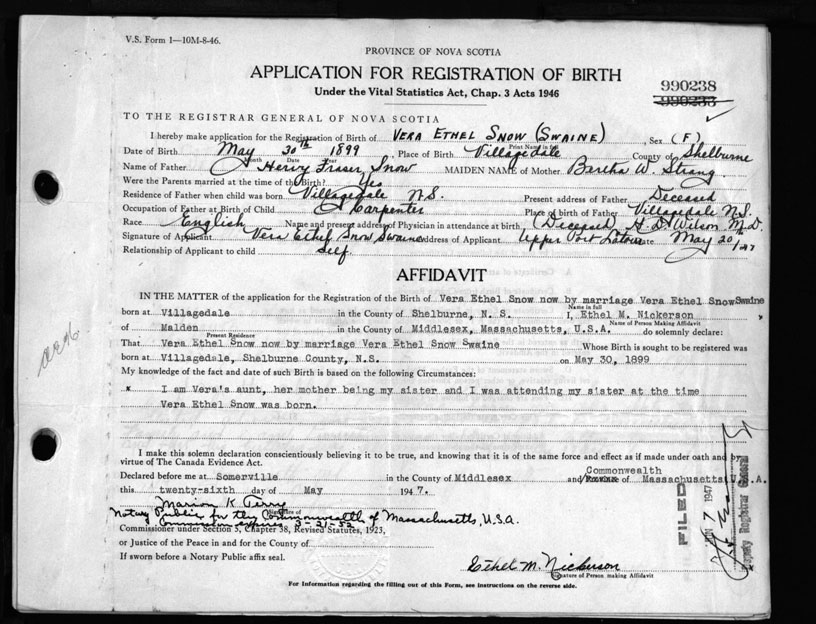 V.S. Form 1—10M-8-46.
PROVINCE OF NOVA SCOTIA
APPLICATION FOR REGISTRATION OF BIRTH
Under the Vital Statistics Act, Chap. 3 Acts 1946
990238
990233
TO THE REGISTRAR GENERAL OF NOVA SCOTIA
I hereby make application for the Registration of Birth of VERA ETHEL SNOW (SWAINE) Sex (F)
Print Name in full
Date of Birth May 30th 1899, Place of Birth Villagedale County of Shelburne
Month Date Year
Name of Father Hervy Fraser Snow MAIDEN NAME of Mother Bertha W. Strang.
Were the Parents married at the time of the Birth? Yes
Residence of Father when child was born Villagedale N.S. Present address of Father Deceased
Occupation of Father at Birth of Child Carpenter Place of birth of Father Villagedale N.S.
Race English Name and present address of Physician in attendance at birth (Deceased) H. D. Wilson M.D.
Signature of Applicant Vera Ethel Snow Swaine Address of Applicant Upper Port Latour Date May 20th/47
Relationship of Applicant to child Self
AFFIDAVIT
IN THE MATTER of the application for the Registration of the Birth of Vera Ethel Snow now by marriage Vera Ethel Snow Swaine
Name in full
born at Villagedale in the County of Shelburne, N. S. I, Ethel M. Nickerson
Name of Person Making Affidavit
of Malden in the County of Middlesex, Massachusetts, U.S.A. do solemnly declare:
Present Residence
That Vera Ethel Snow now by marriage Vera Ethel Snow Swaine Whose Birth is sought to be registered was
born at Villagedale, Shelburne County, N.S. on May 30, 1899
My knowledge of the fact and date of such Birth is based on the following Circumstances:
I am Vera's aunt, her mother being my sister and I was attending my sister at the time
Vera Ethel Snow was born.
I make this solemn declaration conscientiously believing it to be true, and knowing that it is of the same force and effect as if made under oath and by
virtue of The Canada Evidence Act.
Commonwealth
Declared before me at Somerville in the County of Middlesex and Province of Massachusetts, U.S.A.
this twenty-sixth day of May 1947.
Marion K. Terry
Signature of
Notary Public for the Commonwealth of Massachusetts, U.S.A.
Commission expires 3-21-52
Commissioner under Section 5, Chapter 38, Revised Statutes, 1923,
or Justice of the Peace in and for the County of
If sworn before a Notary Public affix seal.
Ethel M. Nickerson
Signature of Person making Affidavit
For Information regarding the filling out of this Form, see instructions on the reverse side.
FILED
7 1947
Deputy Registrar General